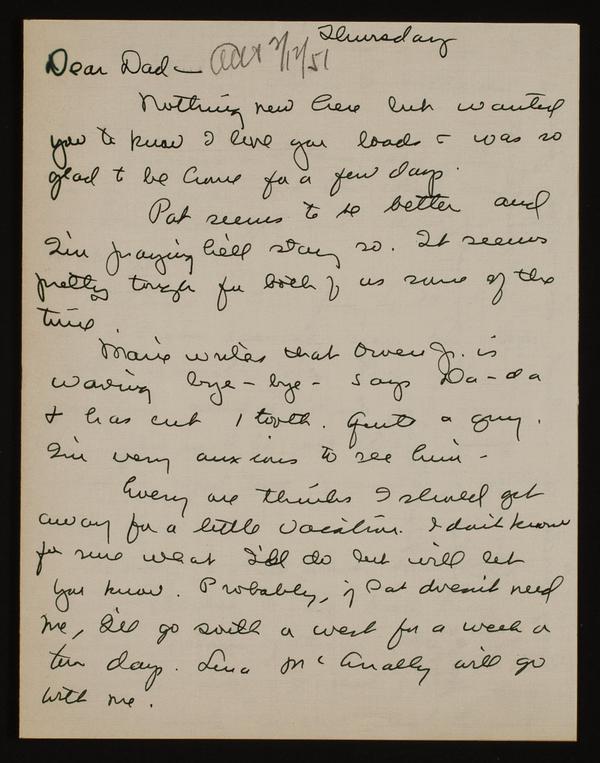 Thursday
Dear Dad — 2/12/51
Nothing new here but wanted
you to know I love you loads & was so
glad to be home for a few days.
Pat seems to be better and
I'm praying he'll stay so. It seems
pretty tough for both of us some of the
time.
Marie writes that Owen Jr. is
waving bye-bye - says Da-da
& has cut 1 tooth. Quite a guy.
I'm very anxious to see him -
Every one thinks I should get
away for a little vacation. I don't know
for sure what I'll do but will let
you know. Probably, if Pat doesn't need
me, I'll go south or west for a week or
ten days. Lena McAnally will go
with me.